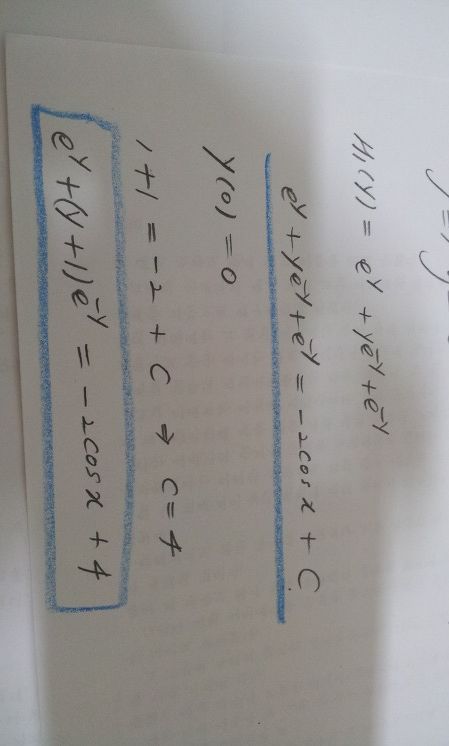 H₁(y) = eʸ + ye⁻ʸ + e⁻ʸ
eʸ + ye⁻ʸ + e⁻ʸ = -2cosx + C
y(0) = 0
1+1 = -2 + C ⇒ C = 4
eʸ + (y+1)e⁻ʸ = -2cosx + 4